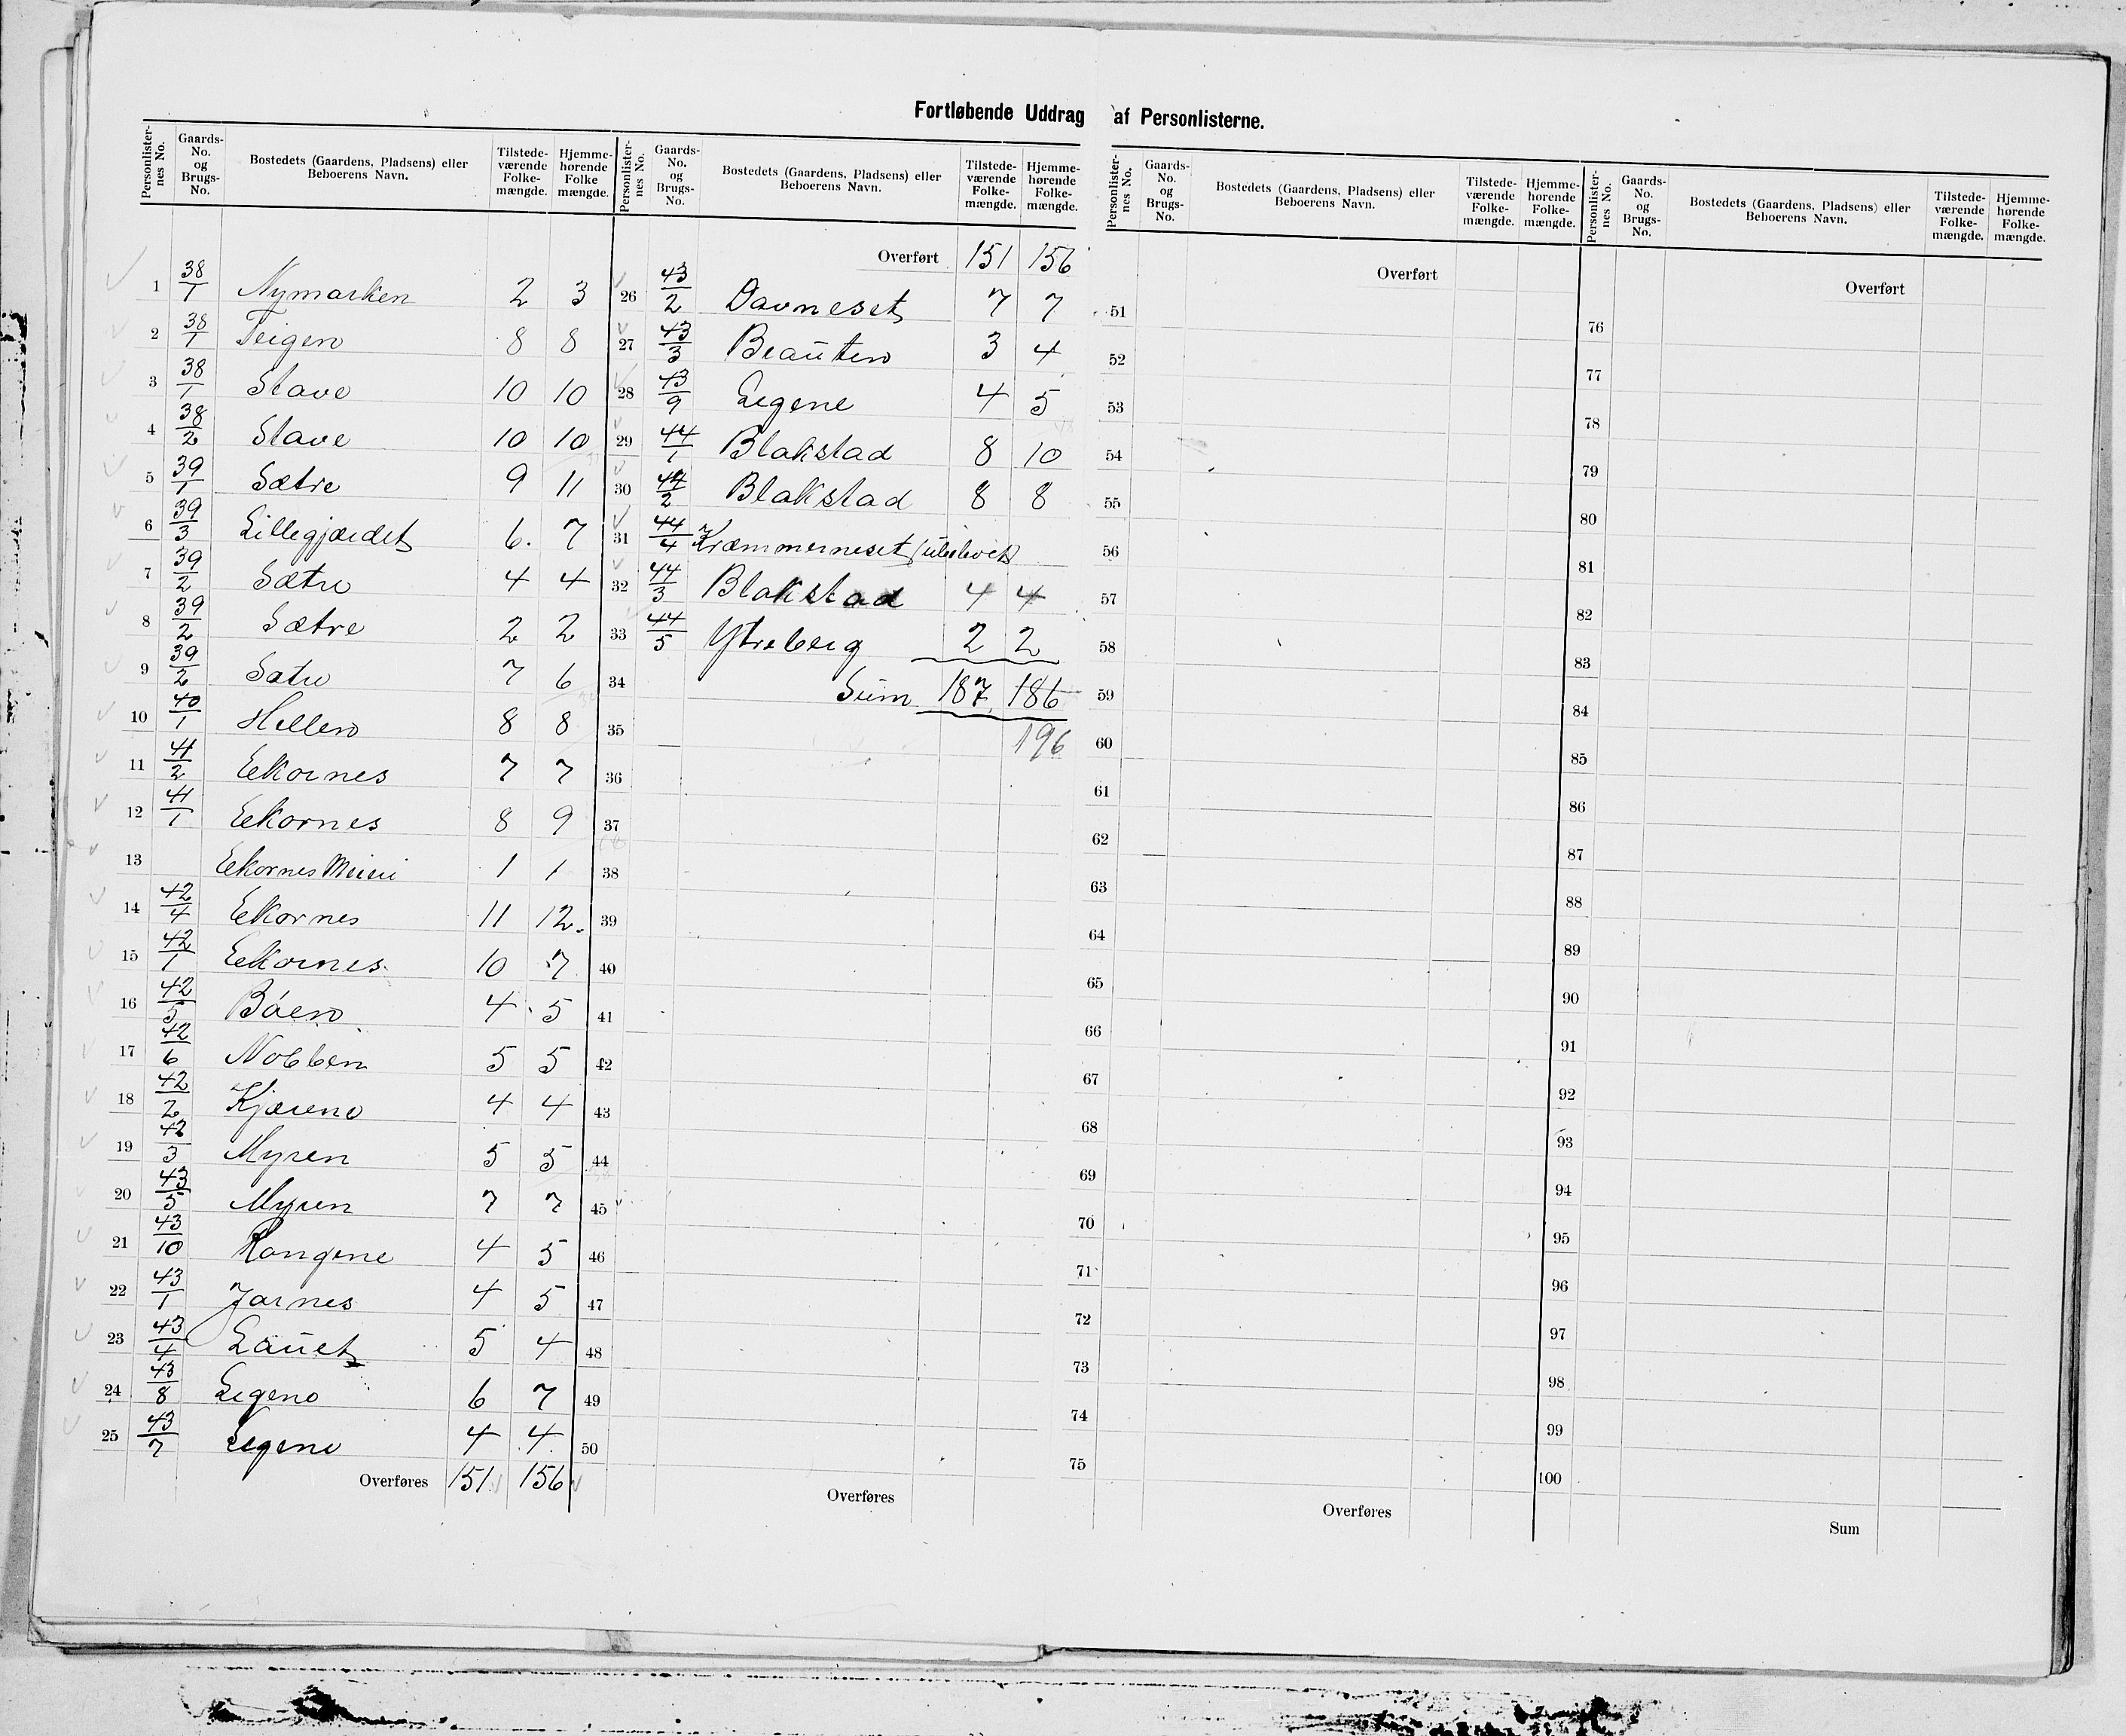 Fortløbende Uddrag af Personlisterne.
Personlisternes No. Gaards-No. og Brugs-No. Bostedets (Gaardens, Pladsens) eller Beboerens Navn. Tilstedeværende Folkemængde. Hjemmehørende Folkemængde.
1 38/1 Nymarken 2 3
2 38/1 Teigen 8 8
3 38/1 Stave 10 10
4 38/2 Stave 10 10
5 39/1 Sætre 9 11
6 39/3 Lillegjærdet 6. 7
7 39/2 Sætre 4 4
8 39/2 Sætre 2 2
9 39/2 Sætre 7 6
10 40/1 Hellen 8 8
11 41/2 Eekornes 7 7
12 41/1 Eekornes 8 9
13 Eekornes Meieri 1 1
14 42/4 Eekornes 11 12.
15 42/1 Eekornes 10 7
16 42/5 Bøen 4 5
17 42/6 Nobben 5 5
18 42/2 Kjærene 4 4
19 42/3 Myren 5 5
20 43/5 Myren 7 7
21 43/10 Rangene 4 5
22 43/1 Jarnes 4 5
23 43/4 Lauet 5 4
24 43/8 Legene 6 7
25 43/7 Legene 4 4
Overføres 151 156
Personlisternes No. Gaards-No. og Brugs-No. Bostedets (Gaardens, Pladsens) eller Beboerens Navn. Tilstedeværende Folkemængde. Hjemmehørende Folkemængde.
Overført 151 156
26 43/2 Davneset 7 7
27 43/3 Brauten 3 4
28 43/9 Legene 4 5
29 44/1 Blakstad 8 10
30 44/2 Blakstad 8 8
31 44/4 Kræmmerneset (ubeboet)
32 44/3 Blakstad 4 4
33 44/5 Ytreberg 2 2
34 Sum 187 186
35 196
36
37
38
39
40
41
42
43
44
45
46
47
48
49
50
Overføres
Personlisternes No. Gaards-No. og Brugs-No. Bostedets (Gaardens, Pladsens) eller Beboerens Navn. Tilstedeværende Folkemængde. Hjemmehørende Folkemængde.
Overført
51
52
53
54
55
56
57
58
59
60
61
62
63
64
65
66
67
68
69
70
71
72
73
74
75
Overføres
Personlisternes No. Gaards-No. og Brugs-No. Bostedets (Gaardens, Pladsens) eller Beboerens Navn. Tilstedeværende Folkemængde. Hjemmehørende Folkemængde.
Overført
76
77
78
79
80
81
82
83
84
85
86
87
88
89
90
91
92
93
94
95
96
97
98
99
100
Sum